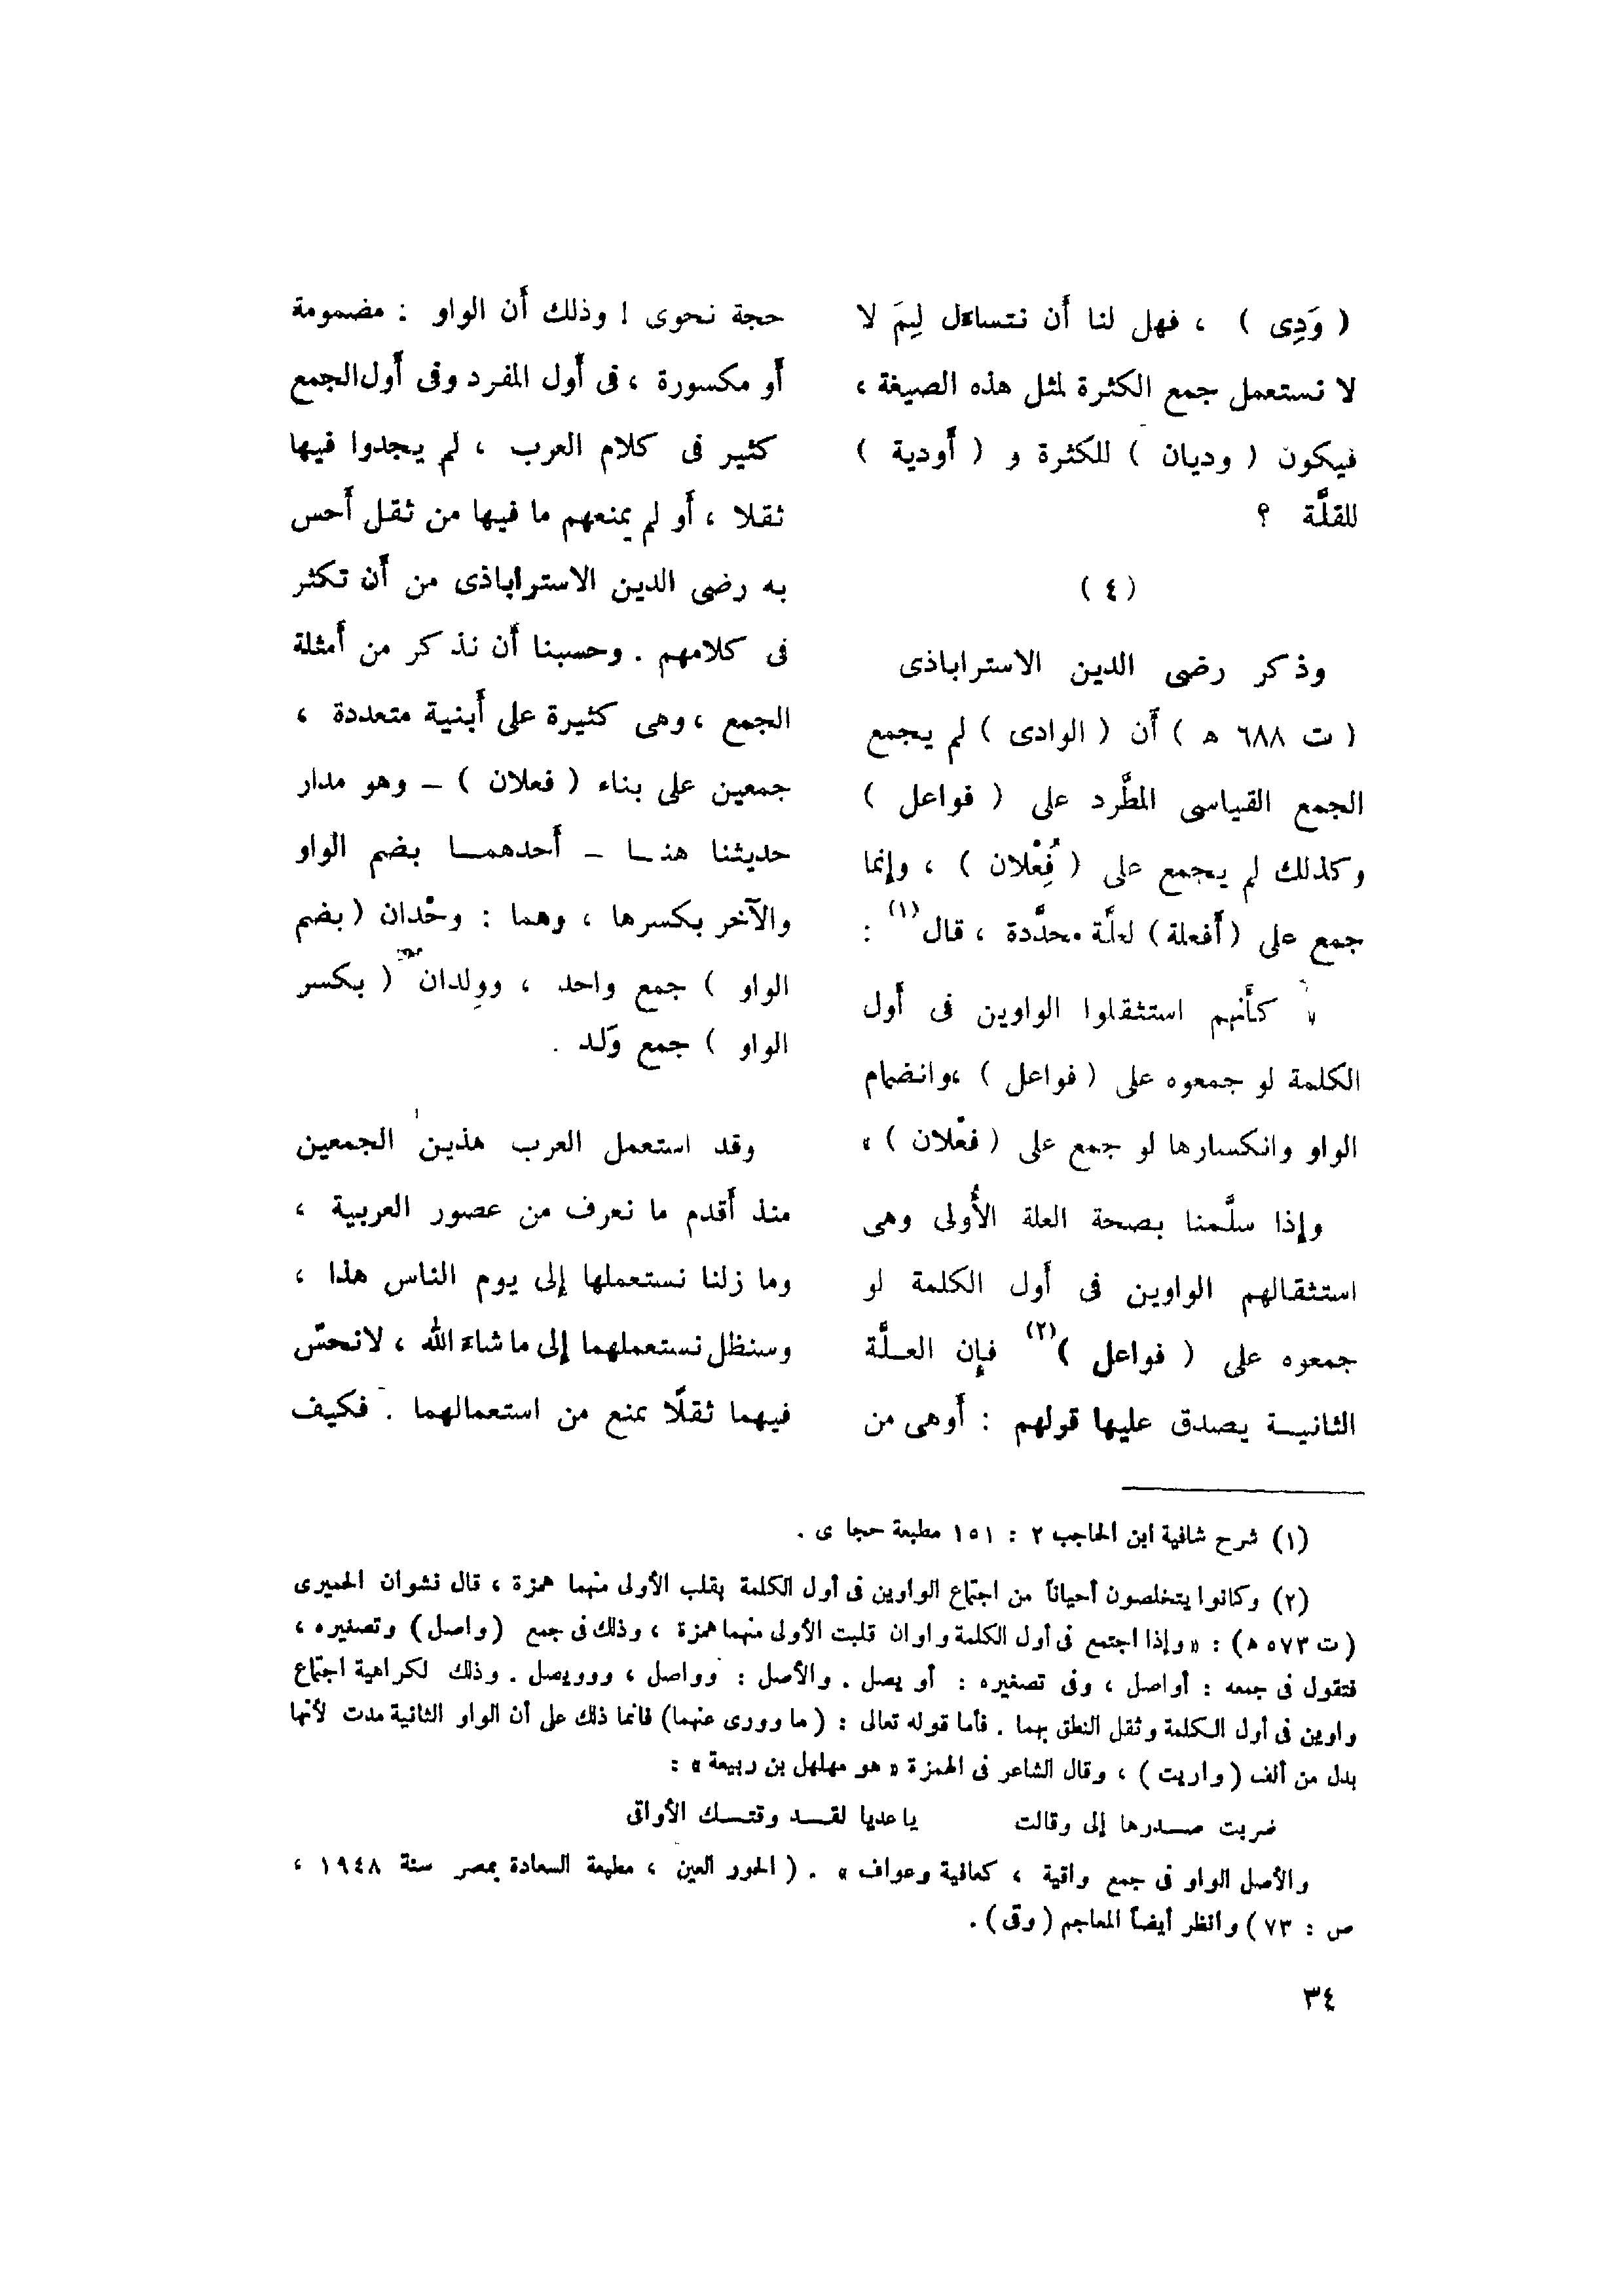 ( وَدِى ) ، فهل لنا أَن نتساءَل لِمَ لا
لا نستعمل جمع الكثرة لمثل هذه الصيغة ،
فيكون ( وديان ) للكثرة و ( أَودية )
للقلَّة ؟
( ٤ )
وذكر رضى الدين الاستراباذى
( ت ٦٨٨ ه ) أَن ( الوادى ) لم يجمع
الجمع القياسى المطَّرد على ( فواعل )
وكذلك لم يجمع على ( فُِعْلان ) ، وإنما
جمع على ( أَفعلة ) لعلَّة محدَّدة ، قال (١) :
« كأَنهم استثقلوا الواوين فى أَول
الكلمة لو جمعوه على ( فواعل ) ،وانضمام
الواو وانكسارها لو جمع على ( فعْلان ) »
وإذا سلَّمنا بصحة العلة الأُولى وهى
استثقالهم الواوين فى أَول الكلمة لو
جمعوه على ( فواعل ) (٢) فإن العـلَّة
الثانيـة يصدق عليها قولهم : أَوهى من
حجة نحوى ! وذلك أَن الواو : مضمومة
أَو مكسورة ، فى أَول المفرد وفى أَول الجمع
كثير فى كلام العرب ، لم يجدوا فيها
ثقلا ، أَو لم يمنعهم ما فيها من ثقل أَحس
به رضى الدين الاستراباذى من أَن تكثر
فى كلامهم . وحسبنا أَن نذكر من أَمثلة
الجمع ، وهى كثيرة على أَبنية متعددة ،
جمعين على بناء ( فعلان ) – وهو مدار
حديثنا هنـا – أَحدهمـا بضم الواو
والآخر بكسرها ، وهما : وحْدان ( بضم
الواو ) جمع واحد ، ووِلدان ( بكسر
الواو ) جمع وَلد .
وقد استعمل العرب هذين الجمعين
منذ أَقدم ما نعرف من عصور العربية ،
وما زلنا نستعملها إلى يوم الناس هذا ،
وسنظل نستعملهما إلى ما شاءَ الله ، لانحسّ
فيهما ثقلًا يمنع من استعمالهما . فكيف
(١) شرح شافية ابن الحاجب ٢ : ١٥١ مطبعة حجا ى .
(٢) وكانوا يتخلصون أحياناً من اجتماع الواوين فى أول الكلمة بقلب الأولى منهما همزة ، قال نشوان الحميرى
( ت ٥٧٣ ه ) : « وإذا اجتمع فى أول الكلمة واوان قلبت الأولى منهما همزة ، وذلك فى جمع ( واصل ) وتصغيره ،
فتقول فى جمعه : أواصل ، وفى تصغيره : أو يصل . والأصل : وواصل ، ووويصل . وذلك لكراهية اجتماع
واوين فى أول الكلمة وثقل النطق بهما . فأما قوله تعالى : ( ما وورى عنهما ) فانما ذلك على أن الواو الثانية مدت لأنها
بدل من ألف ( واريت ) ، وقال الشاعر فى الهمزة « هو مهلهل بن ربيعة » :
ضربت صـدرها إلى وقالت يا عديا لقـد وقتـك الأواقى
والأصل الواو فى جمع واقية ، كعافية وعواف » . ( الحور العين ، مطبعة السعادة بمصر سنة ١٩٤٨ ،
ص : ٧٣ ) وانظر أيضاً المعاجم ( وقى ) .
٣٤